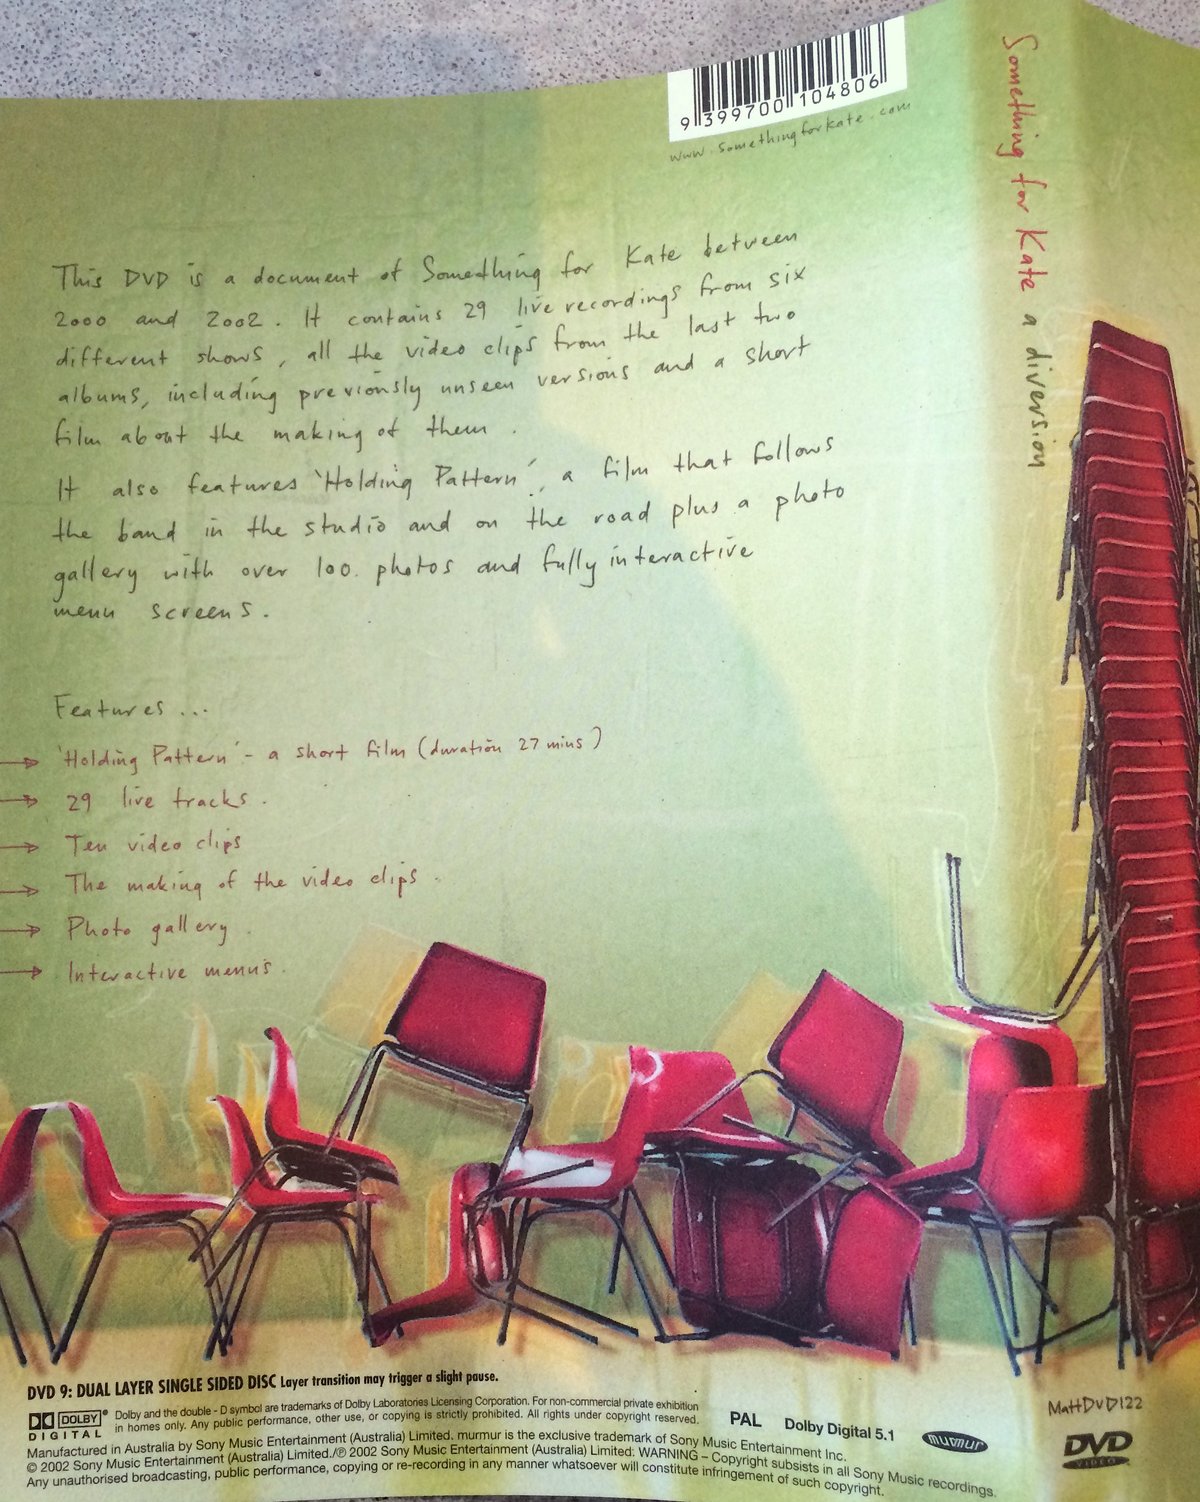 9 399700 104806
www.somethingforkate.com
Something for Kate a diversion
This DVD is a document of Something for Kate between
2000 and 2002. It contains 29 live recordings from six
different shows, all the video clips from the last two
albums, including previously unseen versions and a short
film about the making of them.
It also features 'Holding Pattern', a film that follows
the band in the studio and on the road plus a photo
gallery with over 100 photos and fully interactive
menu screens.
Features...
'Holding Pattern' - a short film (duration 27 mins)
29 live tracks.
Ten video clips
The making of the video clips.
Photo gallery.
Interactive menus.
DVD 9: DUAL LAYER SINGLE SIDED DISC Layer transition may trigger a slight pause.
DOLBY DIGITAL
Dolby and the double - D symbol are trademarks of Dolby Laboratories Licensing Corporation. For non-commercial private exhibition
in homes only. Any public performance, other use, or copying is strictly prohibited. All rights under copyright reserved.
PAL Dolby Digital 5.1
murmur
MattDVD122
DVD VIDEO
Manufactured in Australia by Sony Music Entertainment (Australia) Limited. murmur is the exclusive trademark of Sony Music Entertainment Inc.
© 2002 Sony Music Entertainment (Australia) Limited./℗ 2002 Sony Music Entertainment (Australia) Limited: WARNING – Copyright subsists in all Sony Music recordings.
Any unauthorised broadcasting, public performance, copying or re-recording in any manner whatsoever will constitute infringement of such copyright.